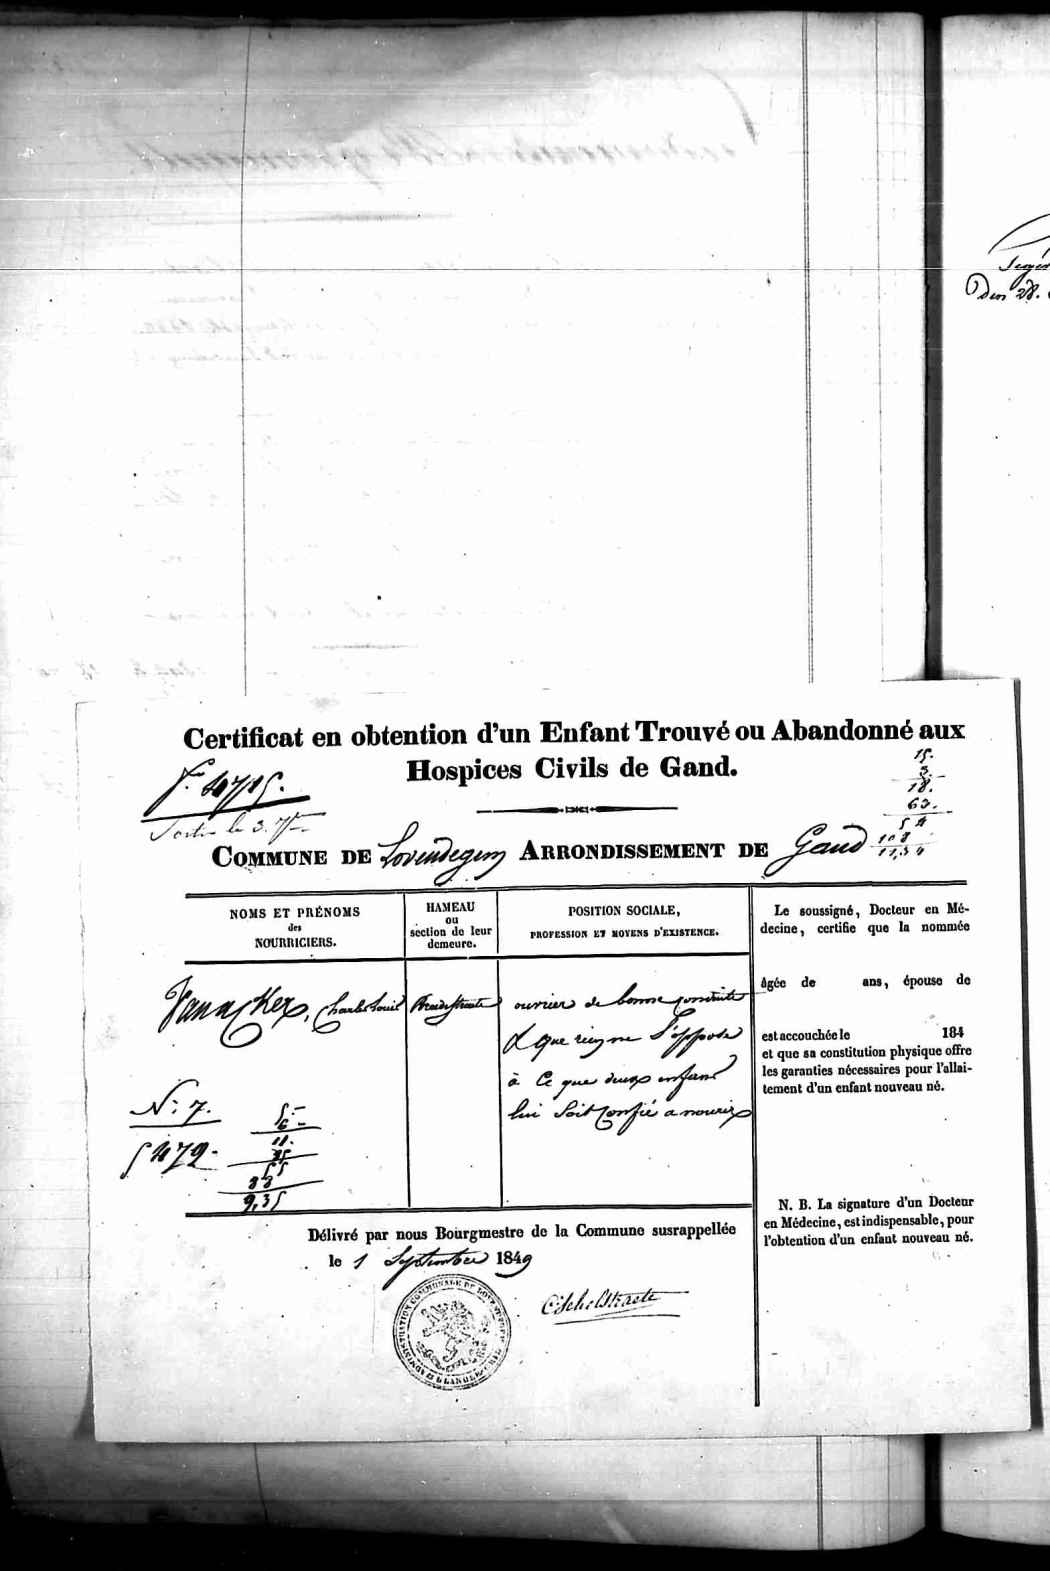 Certificat en obtention d'un Enfant Trouvé ou Abandonné aux
Hospices Civils de Gand.
15.
3.
18.
63.
54
108
11,34
Sortie le 3. 7bre
COMMUNE DE Lovendegem ARRONDISSEMENT DE Gand
NOMS ET PRÉNOMS
des
NOURRICIERS.
HAMEAU
ou
section de leur
demeure.
POSITION SOCIALE,
PROFESSION ET MOYENS D'EXISTENCE.
Vanacker, Charles Louis
ouvrier de bonne conduite
& que rien ne s'oppose
à ce que deux enfans
lui soit confié a nourir
N: 7.
5472-
5-
6-
11.
85
55
88
9,35
Le soussigné, Docteur en Mé-
decine, certifie que la nommée
âgée de ans, épouse de
est accouchée le 184
et que sa constitution physique offre
les garanties nécessaires pour l'allai-
tement d'un enfant nouveau né.
N. B. La signature d'un Docteur
en Médecine, est indispensable, pour
l'obtention d'un enfant nouveau né.
Délivré par nous Bourgmestre de la Commune susrappellée
le 1 Septembre 1849
den 28.